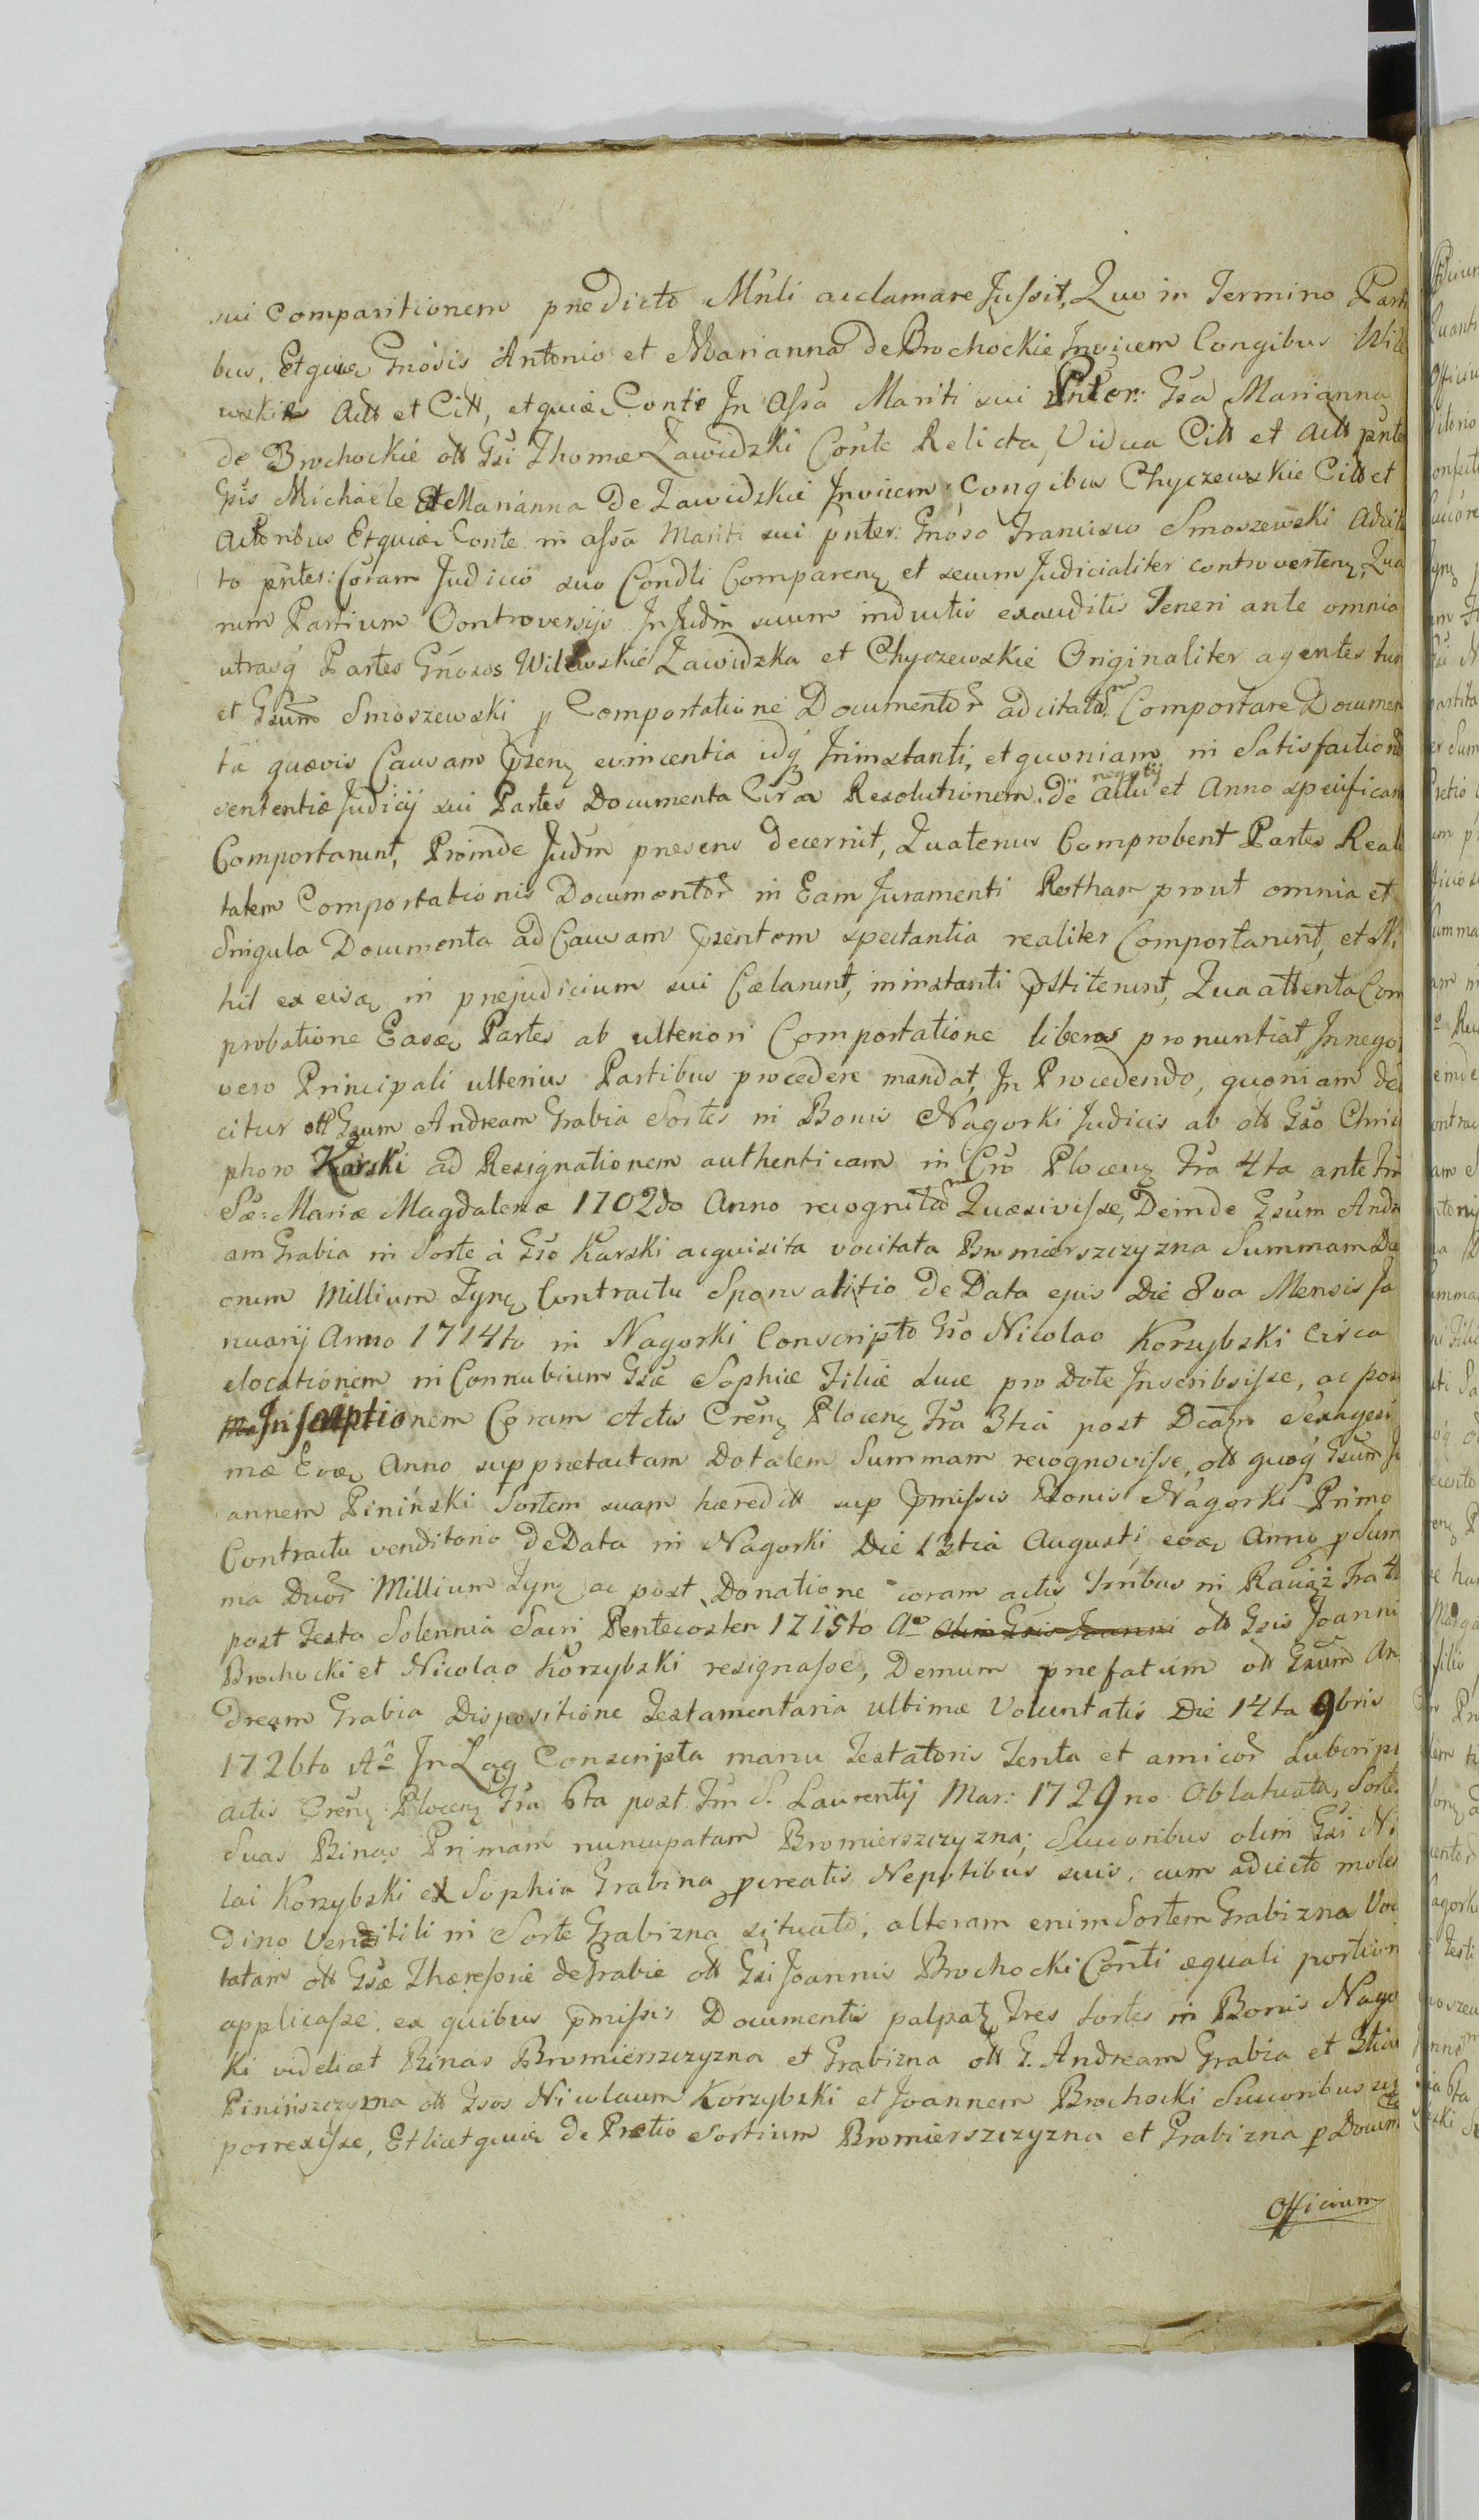 sui comparitionem predicto Mnli acclamare Jussit, Quo in Termino Parti
bus, Etquia Gnosis Antonio et Marianna de Brochockie Invicem Congibus Wile
wskie Actt et Citt, etquia Conte In Assa Mariti sui Pnter: Gsa Marianna
de Brochockie ott Gsi Thomæ Zawidzki Conte Relicta, Vidua Citt et Actt pnte
Gsis Michaele Et Marianna De Zawidzkie Invicem Congibus Chyczewskie Citt et
Actoribus Etquia Conte in assa Mariti sui pnter: Gnoso Francisco Smoszewski Adcita
to pnter: Coram Judicio suo Condli Comparenz et secum Judicialiter controvertenz, Qua
rum Partium Controversijs In Judm suum inductis exauditis Teneri ante omnia
utrasq Partes Gnosos Wilewskie Zawidzka et Chyczewskie Originaliter agentes tum
et Gsum Smoszewski p Comportatione Documentor adcitatum Comportare Documen
ta quævis Causam Psenz evincentia idq Ininstanti, et quoniam in Satisfactione
sententiæ Judicij sui Partes Documenta Circa Resolutionem de actu negotij et Anno specifican
Comportarunt, Proinde Judm presens decernit, Quatenus Comprobent Partes Reali
tatem Comportationis Documentor in Eam Juramenti Rotham prout omnia et
Singula Documenta ad Causam Psentem spectantia realiter Comportarunt, et Ni
hil ex eisq in prejudicium sui Cælarunt, ininstanti Pstiterunt, Qua attenta Com
probatione Easq Partes ab ulteriori Comportatione liberas pronuntiat, In nego
vero Principali ulterius Partibus procedere mandat, In Procedendo, quoniam do
citur ott Gsum Andream Grabia Sortes in Bonis Nagorki Judicis ab ott Gso Chris
phoro Karski ad Resignationem authenticam in Cro Plocenz Fra 4ta ante Fm
Sæ: Mariæ Magdalenæ 1702do Anno recognitam Quæsivisse, Deinde Gsum Andre
am Grabia in Sorte à Gso Karski acquisita vocitata Bromierszczyzna Summam Du
orum Millium Fynz Contractu Sponsalitio de Data ejus Die 8va Mensis Ja
nuarij Anno 1714to in Nagorki Conscripto Gso Nicolao Korzybski circa
elocationem in Connubium Gsæ Sophiæ Filiæ Suæ pro Dote Inscribsisse, ac post
Inscriptionem Coram Actis Crenz Plocenz Fra 3tia post Dcam Sexagesi
mæ Eoq Anno suppretactam Dotalem Summam recognovisse, ott quoq Gsum Jo
annem Pininski Sortem suam hæreditt sup Pmissis Bonis Nagorki Primo
Contractu venditorio de Data in Nagorki Die 13tia Augusti, eoq Anno p Sum
ma Duor Millium Fynz ac post Donatione coram actis Trribus in Raciąż Fra 4
post Festa Solennia Sacri Pentecosten 1715to Ao olim Gsis Joanni ott Gsis Joanni
Brochocki et Nicolao Korzybski resignasse, Demum prefatum ott Gsum An
dream Grabia Dispositione Testamentaria ultimæ Voluntatis Die 14ta 9bris
1726to Ao In Łąg Conscripta manu Testatoris Tenta et amicor Subscript
actis Crenz Plocenz Fra 6ta post Fm S. Laurentij Mar: 1729no Oblatucata, Sortes
Suas Binas Primam nuncupatam Bromierszczyzna; Succoribus olim Gsi Ni
lai Korzybski et Sophia Grabina pcreatis Nepotibus suis, cum adjecto molen
dino Ventitili in Sorte Grabizna situato, alteram enim Sortem Grabizna Voc
tatam ott Gsæ Thæressiæ de Grabie ott Gsi Joannis Brochocki Conti æquali portion
applicasse, ex quibus Pmissis Documentis palpatz Tres Sortes in Bonis Nago
ki videlicet Binas Bromierszczyzna et Grabizna ott G. Andream Grabia et 3tiam
Pininszczyzna ott Gsos Nicolaum Korzybski et Joannem Brochocki Succoribus
porrexisse, Et licet quia de Pretio Sortium Bromierszczyzna et Grabizna p Docum
Officium